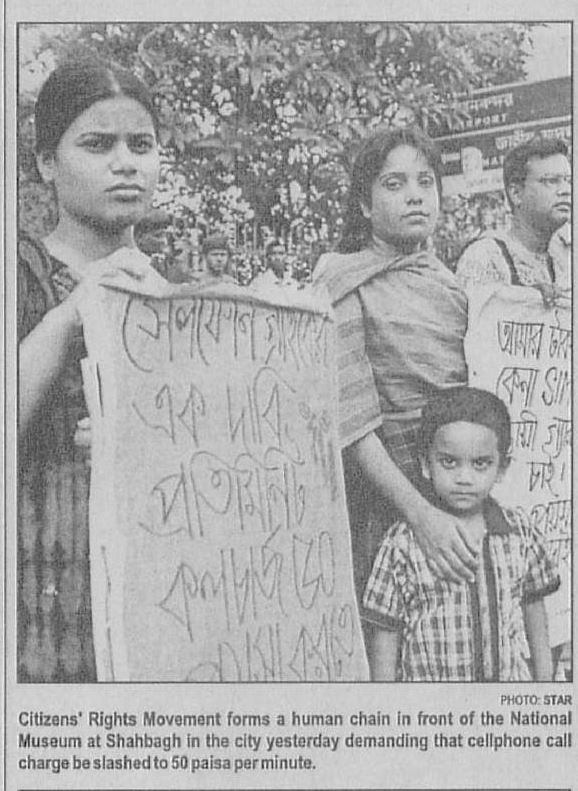 PORT
সেলফোন গ্রাহকের
এক দাবি,
প্রতিমিনিট
কলচার্জ ৫০
পয়সা করতে
আমার টাকা
কেনা
চাই।
PHOTO: STAR
Citizens' Rights Movement forms a human chain in front of the National
Museum at Shahbagh in the city yesterday demanding that cellphone call
charge be slashed to 50 paisa per minute.